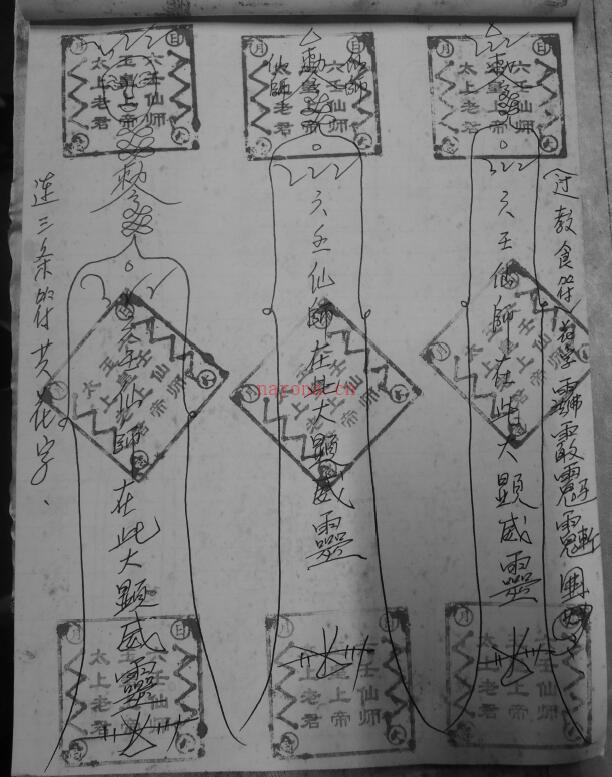 过教食符
連三条符共化字、
勅令
六壬仙師在此大顯威靈
勅
六壬仙師在此大顯威靈
六壬仙師在此大顯威靈
月 日
六壬仙师
玉皇上帝
太上老君
月 日
六壬仙师
玉皇上帝
太上老君
月 日
六壬仙师
玉皇上帝
太上老君
六壬仙师
玉皇上帝
太上老君
六壬仙师
玉皇上帝
太上老君
六壬仙师
玉皇上帝
太上老君
月 日
六壬仙师
玉皇上帝
太上老君
月 日
六壬仙师
上帝
太上老君
月 日
仙师
上帝
太上老君
naropa.cn